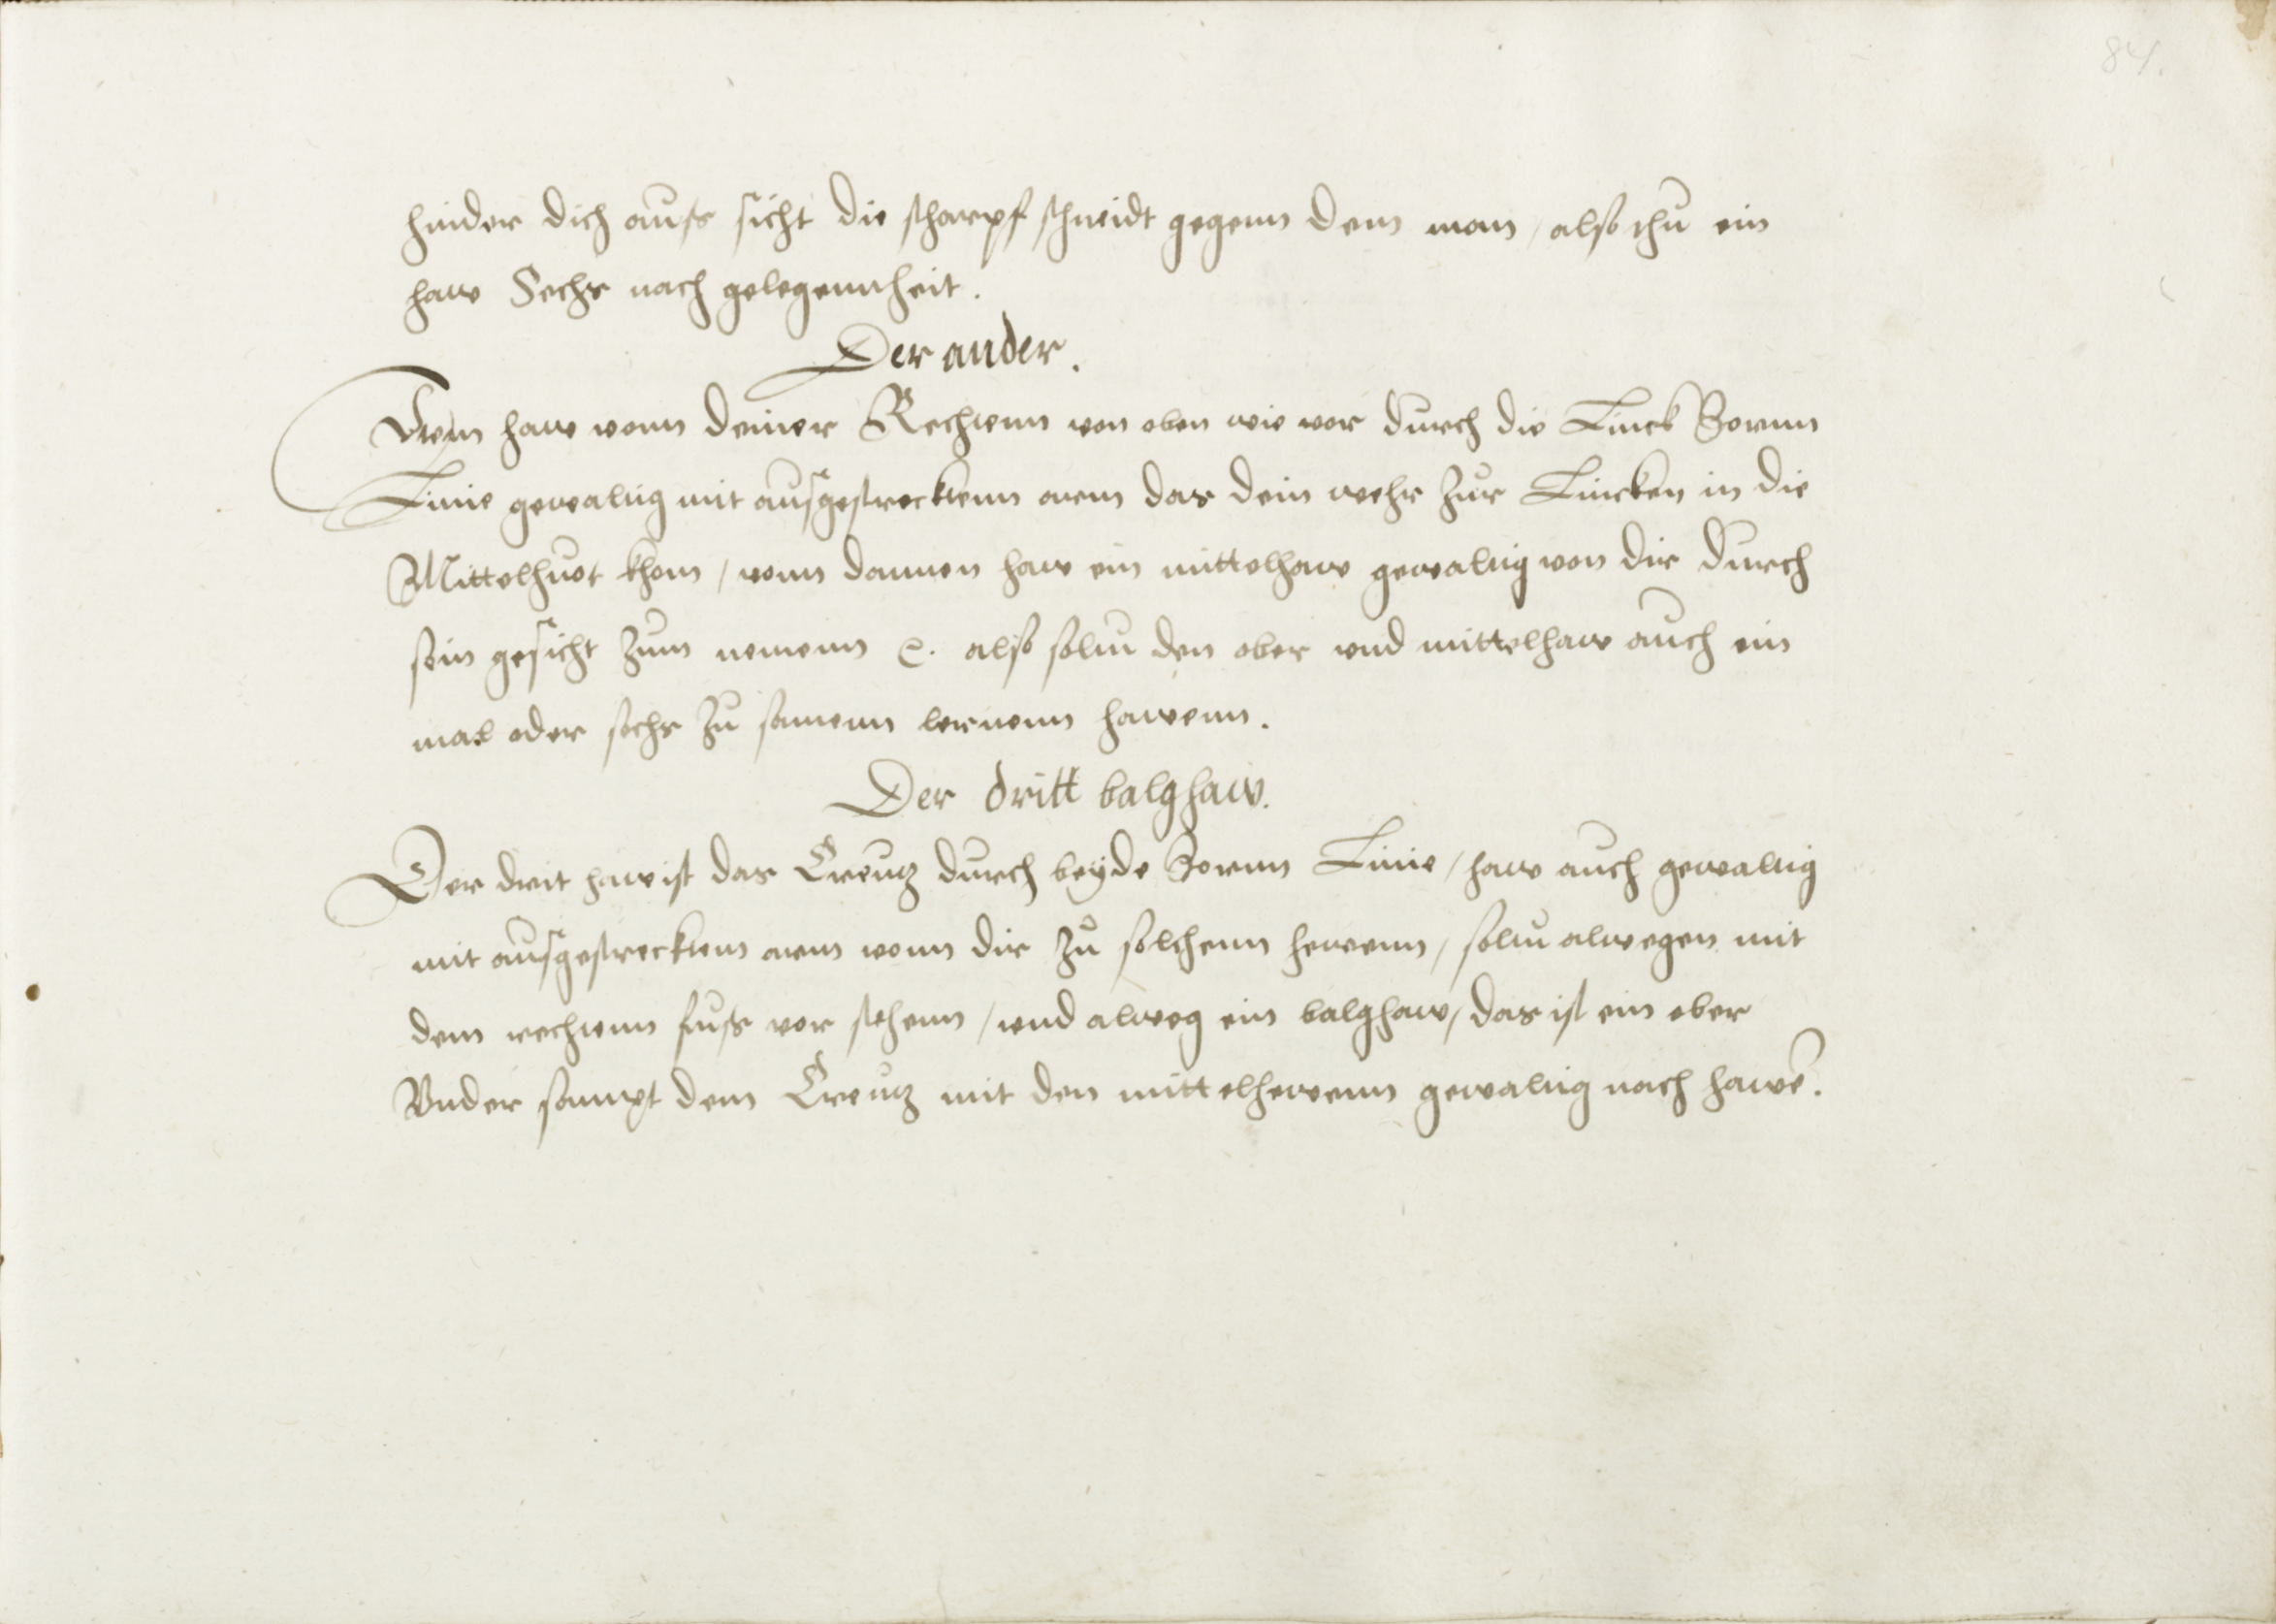 84.
hinder dich auss sicht die scharpf schneidt gegenn dem man / also thu ein
haw Sechs nach gelegennheit.
Der ander.
Item haw vonn deiner Rechtenn von oben wie vor durch die Linck Zornn
Linie gewaltig mit ausgestrecktenn arm das dein wehr zur Lincken in die
Mittelhuot khom / vonn dannen haw ein mittelhaw gewaltig von dir durch
sein gesicht zum nemenn &c. also soltu den ober vnd mittelhaw auch ein
mal oder sechs zu samenn lernenn hawenn.
Der dritt balghaw.
Der drit haw ist das Creutz durch beyde Zornn Linie / haw auch gewaltig
mit ausgestrecktem arm vonn dir zu solchenn hewenn / soltu alwegen mit
dem rechtenn fuss vor stehenn / vnd alweg ein balghaw / das ist ein ober
Vnder sampt dem Creutz mit den mittelhewenn gewaltig nach hawē.